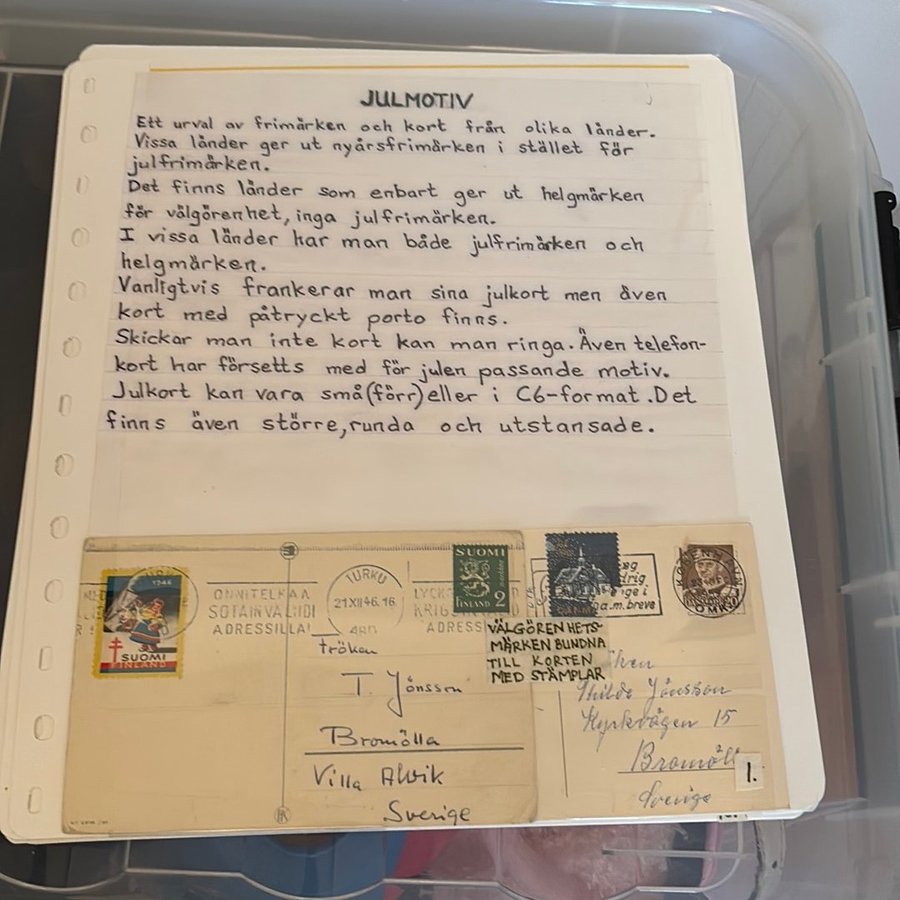 JULMOTIV
Ett urval av frimärken och kort från olika länder.
Vissa länder ger ut nyårsfrimärken i stället för
julfrimärken.
Det finns länder som enbart ger ut helgmärken
för välgörenhet, inga julfrimärken.
I vissa länder har man både julfrimärken och
helgmärken.
Vanligtvis frankerar man sina julkort men även
kort med påtryckt porto finns.
Skickar man inte kort kan man ringa. Även telefon-
kort har försetts med för julen passande motiv.
Julkort kan vara små (förr) eller i C6-format. Det
finns även större, runda och utstansade.
1946
SUOMI
FINLAND
ONNITELKAA
SOTAINVALIDI
ADRESSILLA!
TURKU
21.XII 46.16
ÅBO
LYCK
KRIG
ADRESS
SUOMI
2
FINLAND
fröken
T. Jönsson
Bromölla
Villa Alvik
Sverige
VÄLGÖRENHETS-
MÄRKEN BUNDNA
TILL KORTEN
MED STÄMPLAR
a.m. breve
KØBENHAVN
OMK
Jönsson
Kyrkvägen 15
Bromöll
Sverige
1.